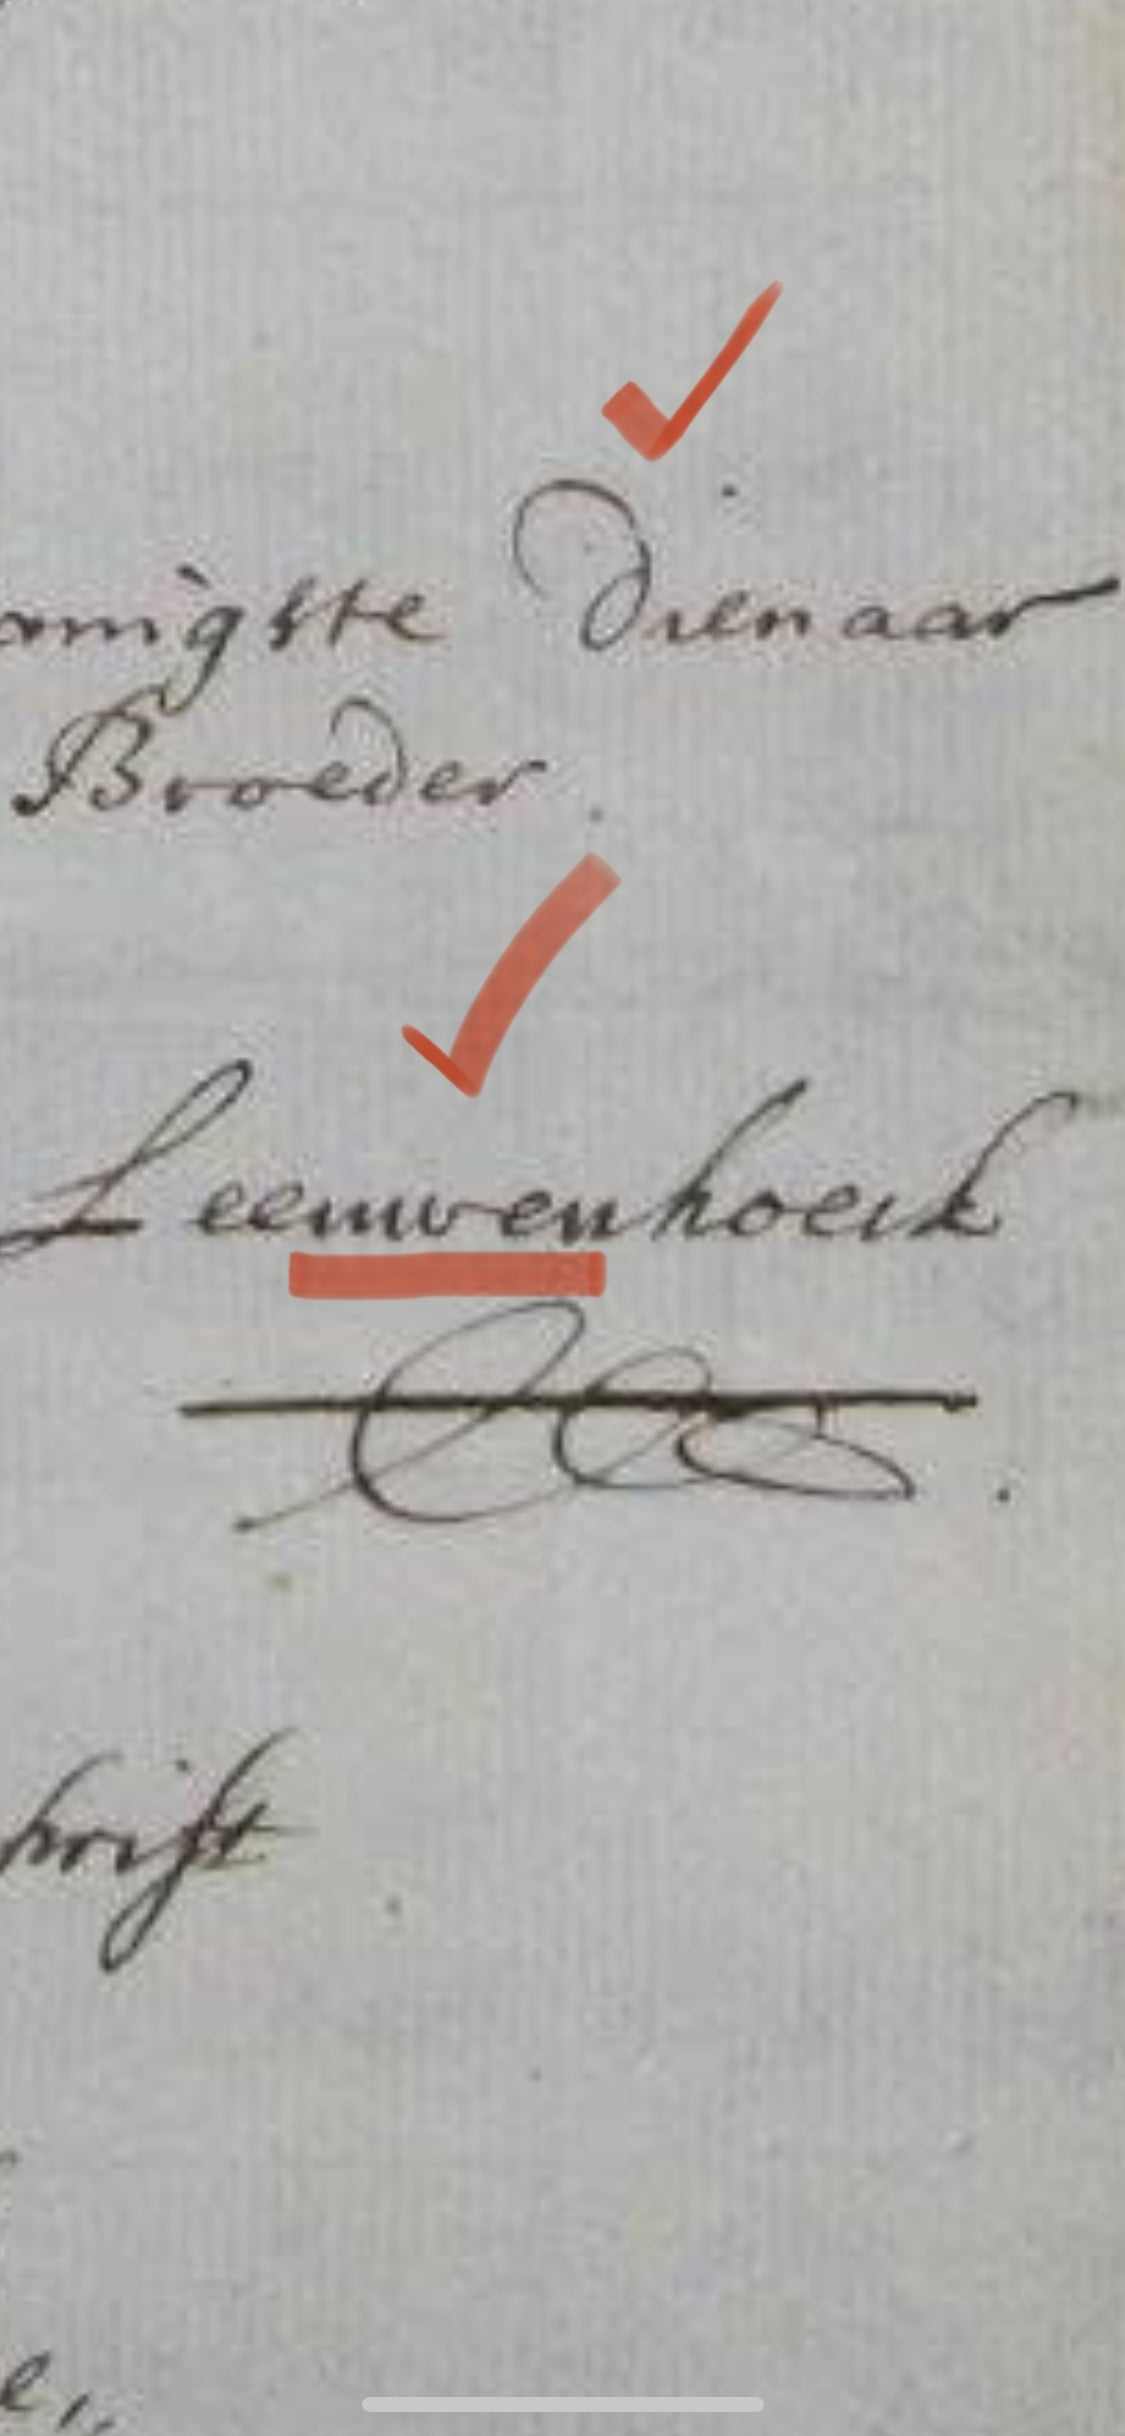 nnigste Dienaar
Broeder
Leeuwenhoeck
hrift
e,,